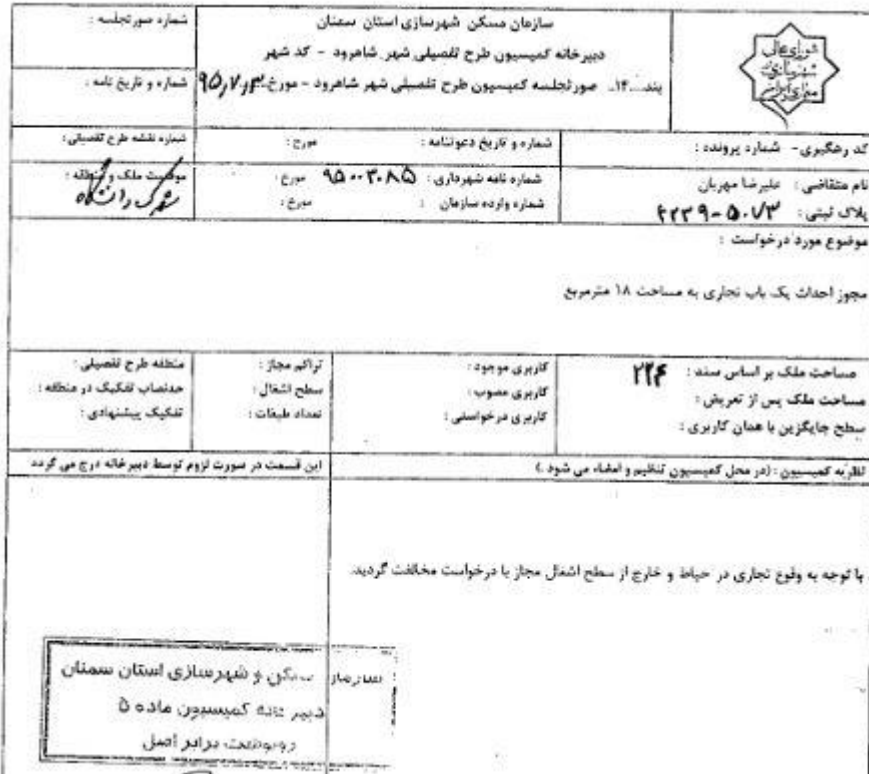 سازمان مسکن شهرسازی استان سمنان
دبیرخانه کمیسیون طرح تفصیلی شهر شاهرود - کد شهر
بند...۱۴.. صورتجلسه کمیسیون طرح تفصیلی شهر شاهرود - مورخ ۹۵/۷/۳
شماره صورتجلسه :
شماره و تاریخ نامه :
شورای عالی
شهرسازی
معماری ایران
کد رهگیری- شماره پرونده :
شماره و تاریخ دعوتنامه : مورخ :
شماره نقشه طرح تفصیلی :
نام متقاضی : علیرضا مهربان
پلاک ثبتی : ۲۲۳۹-۵۰۷/۳
شماره نامه شهرداری : ۹۵۰۰۳۰۸۵ مورخ :
شماره وارده سازمان : مورخ :
موقعیت ملک و منطقه :
شهرک دانشگاه
موضوع مورد درخواست :
مجوز احداث یک باب تجاری به مساحت ۱۸ مترمربع
مساحت ملک بر اساس سند : ۲۲۴
مساحت ملک پس از تعریض :
سطح جایگزین با همان کاربری :
کاربری موجود :
کاربری مصوب :
کاربری درخواستی :
تراکم مجاز :
سطح اشغال :
تعداد طبقات :
منطقه طرح تفصیلی :
حدنصاب تفکیک در منطقه :
تفکیک پیشنهادی :
نظریه کمیسیون : (در محل کمیسیون تنظیم و امضاء می شود .)
این قسمت در صورت لزوم توسط دبیرخانه درج می گردد
با توجه به وقوع تجاری در حیاط و خارج از سطح اشغال مجاز با درخواست مخالفت گردید.
سازمان مسکن و شهرسازی استان سمنان
دبیرخانه کمیسیون ماده ۵
رونوشت برابر اصل